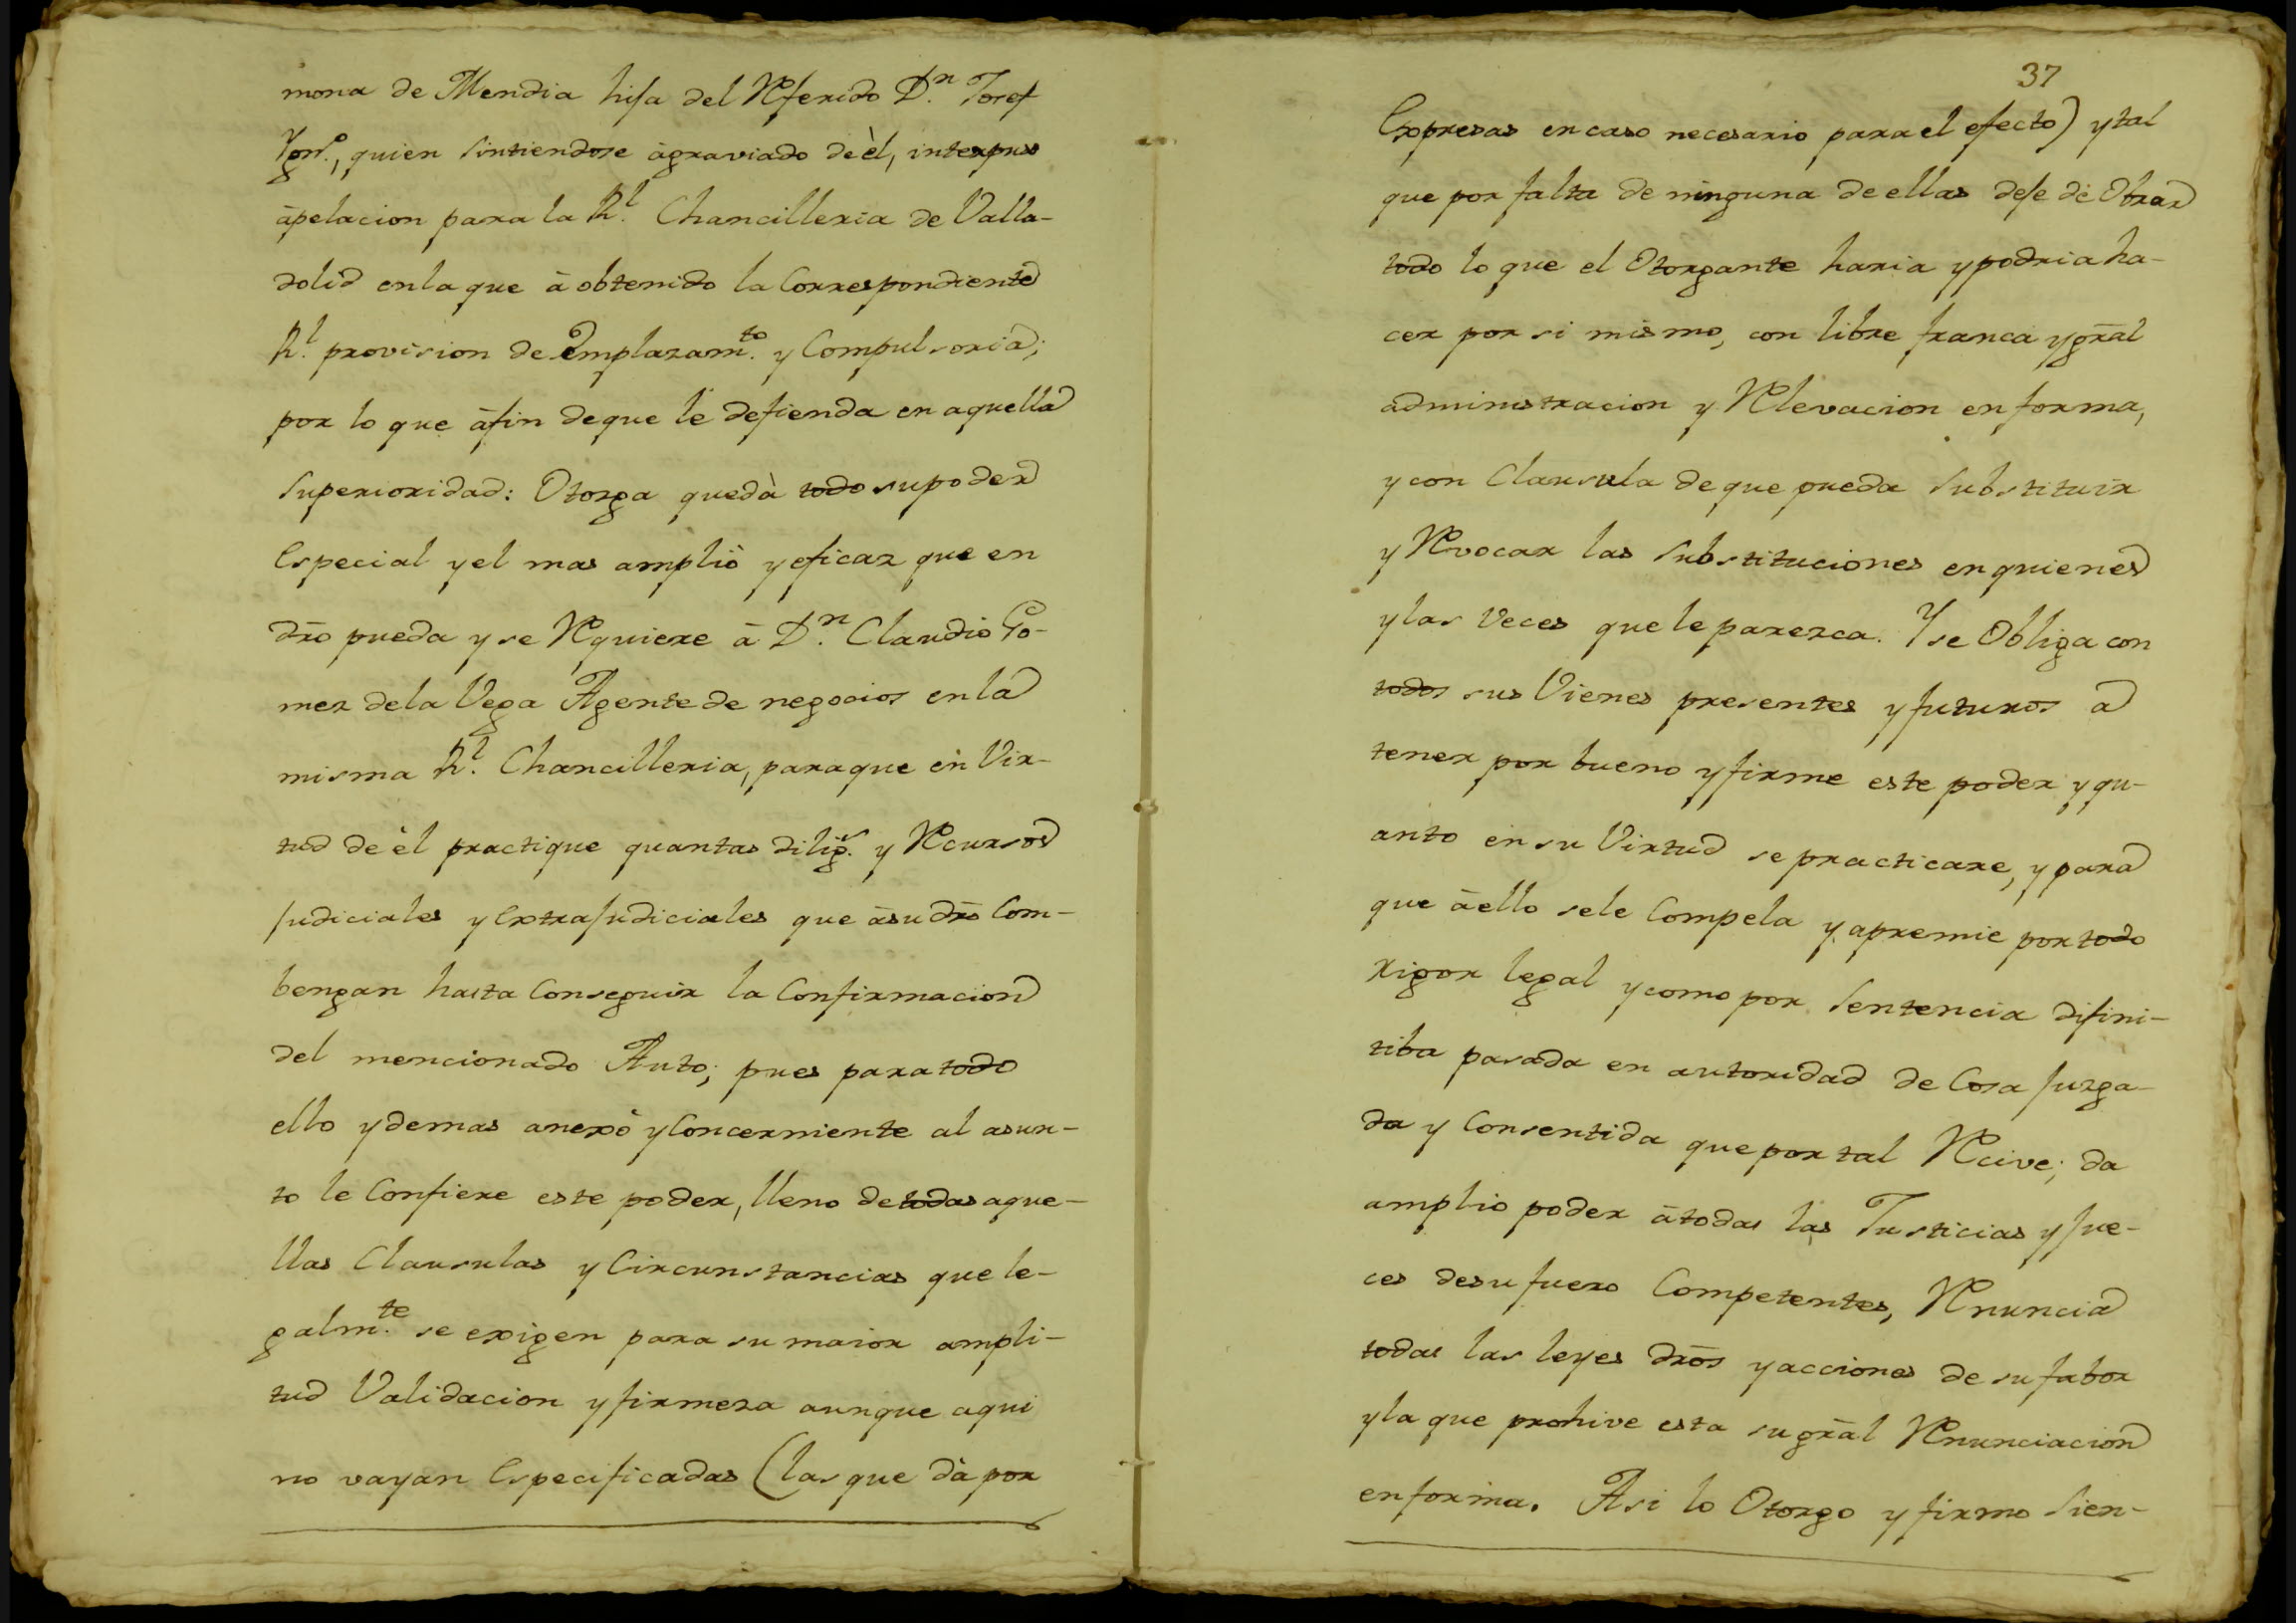 mona de Mendia hija del Referido D.n Josef
Ygn.o, quien sintiendose àgraviado deèl, interpuso
àpelacion para la R.l Chancilleria de Valla-
dolid enla que à obtenido la Correspondiente
R.l provision de Emplazam.to y Compulsoria;
por lo que àfin deque le defienda en aquella
Superioridad: Otorga quedà todo supoder
Especial yel mas ampliò yeficaz que en
dro pueda y se Requiere à D.n Claudio Go-
mez dela Vega Agente de negocios enla
misma R.l Chancilleria, paraque en Vir-
tud deèl practique quantas dilig.s y Recursos
judiciales yExtrajudiciales que àsu dro Com-
bengan hasta Conseguir la Confirmacion
del mencionado Auto; pues paratodo
ello ydemas anexò yConcerniente al asun-
to le Confiere este poder, lleno detodas aque-
llas Clausulas yCircunstancias que le-
galm.te se exigen para su maior ampli-
tud Validacion yfirmeza aunque aqui
no vayan Especificadas (las que dà por
37
Expresas encaso necesario parael efecto) ytal
que por falta de ninguna deellas deje de Obrar
todo lo que el Otorgante haria ypodria ha-
cer por si mismo, con libre franca ygral
administracion y Relevacion en forma,
y con Clausula de que pueda Substituir
y Revocar las Substituciones en quienes
ylas Veces que le parezca. Y se Obliga con
todos sus Vienes presentes yfuturos a
tener por bueno yfirme este poder y qu-
anto en su Virtud se practicare, ypara
que àello sele Compela y apremie portodo
rigor legal ycomo por Sentencia difini-
tiba pasada en autoridad de Cosa juzga-
da y Consentida que por tal Recive; da
amplio poder àtodas las Justicias yjue-
ces desufuero Competentes, Renuncia
todas las leyes dros yacciones de sufabor
yla que prohive esta su gral Renunciacion
enforma. Asi lo Otorgo yfirmo Sien-